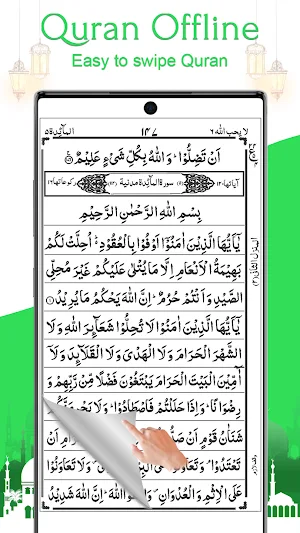 Quran Offline
Easy to swipe Quran
لا يحب الله ٦
١٤٧
المآئدة ٥
اَنْ تَضِلُّوْا ؕ وَاللّٰهُ بِكُلِّ شَیْءٍ عَلِیْمٌ
سورة المآئدة مدنية
بِسْمِ اللّٰهِ الرَّحْمٰنِ الرَّحِیْمِ
یٰۤاَیُّهَا الَّذِیْنَ اٰمَنُوْۤا اَوْفُوْا بِالْعُقُوْدِ ؕ اُحِلَّتْ لَكُمْ
بَهِیْمَةُ الْاَنْعَامِ اِلَّا مَا یُتْلٰی عَلَیْكُمْ غَیْرَ مُحِلِّی
الصَّیْدِ وَاَنْتُمْ حُرُمٌ ؕ اِنَّ اللّٰهَ یَحْكُمُ مَا یُرِیْدُ
یٰۤاَیُّهَا الَّذِیْنَ اٰمَنُوْا لَا تُحِلُّوْا شَعَآىِٕرَ اللّٰهِ وَلَا
الشَّهْرَ الْحَرَامَ وَلَا الْهَدْیَ وَلَا الْقَلَآىِٕدَ وَلَاۤ
آٰمِّیْنَ الْبَیْتَ الْحَرَامَ یَبْتَغُوْنَ فَضْلًا مِّنْ رَّبِّهِمْ وَ
رِضْوَانًا ؕ وَاِذَا حَلَلْتُمْ فَاصْطَادُوْا ؕ وَلَا
شَنَاٰنُ قَوْمٍ اَنْ
تَعْتَدُوْا ۘ وَلَا تَعَاوَنُوْا
عَلَی الْاِثْمِ وَالْعُدْوَانِ ۪ اللّٰهَ ؕ اِنَّ اللّٰهَ شَدِیْدُ